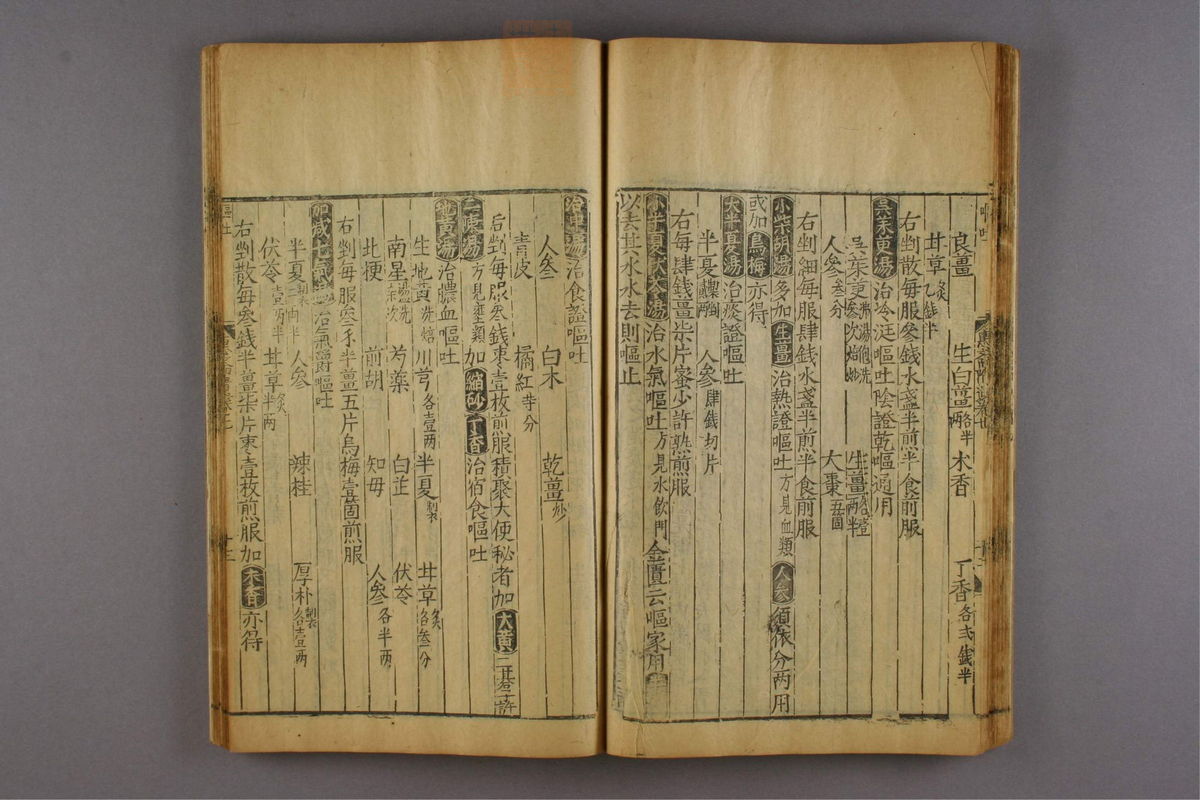 良薑 生白薑 各半兩 木香 丁香 各弍錢半
甘草 炙 乙錢半
右剉散每服叄錢水盞半煎半食前服
吳茱萸湯 治冷涎嘔吐陰證乾嘔通用
吳茱萸 沸湯泡洗叄次焙炒 生薑
人參 叄分 大棗 五箇
右剉細每服肆錢水盞半煎半食前服
小柴胡湯 多加 生薑 治熱證嘔吐 方見血類 人參 須依分兩用
或加 烏梅 亦得
大半夏湯 治痰證嘔吐
半夏 人參 肆錢切片
右每肆錢薑柒片蜜少許熟煎服
小半夏茯苓湯 治水氣嘔吐 方見水飲門 金匱云嘔家用
以去其水水去則嘔止
治中湯 治食證嘔吐
人參 白木 乾薑 炒
青皮 橘紅 等分
右剉每服叄錢棗壹枚煎服積聚大便秘者加 大黃
二陳湯 加 縮砂 丁香 治宿食嘔吐
地黃湯 治膿血嘔吐
生地黃 洗焙 川芎 各壹兩 半夏 製 甘草 炙各叄分
南星 湯洗 芍藥 白芷 伏苓
北梗 前胡 知母 人參 各半兩
右剉每服叄錢半薑五片烏梅壹箇煎服
加減七氣湯 治氣鬱嘔吐
半夏 製 人參 辣桂 厚朴 製各壹兩
伏苓 壹兩半 甘草 炙半兩
右剉散每叄錢半薑柒片棗壹枚煎服加 木香 亦得